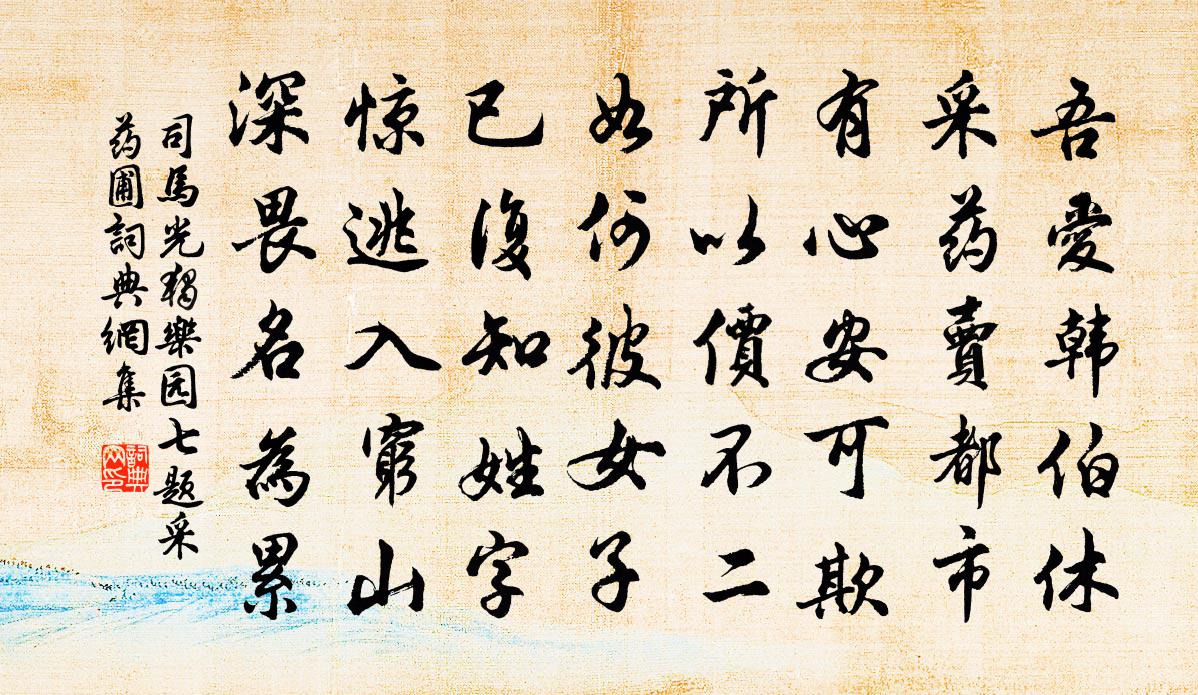 吾愛韩伯休
采药賣都市
有心安可欺
所以價不二
如何彼女子
已復知姓字
惊逃入窮山
深畏名為累
司馬光獨樂园七题采
药圃詞典網集
詞典网印